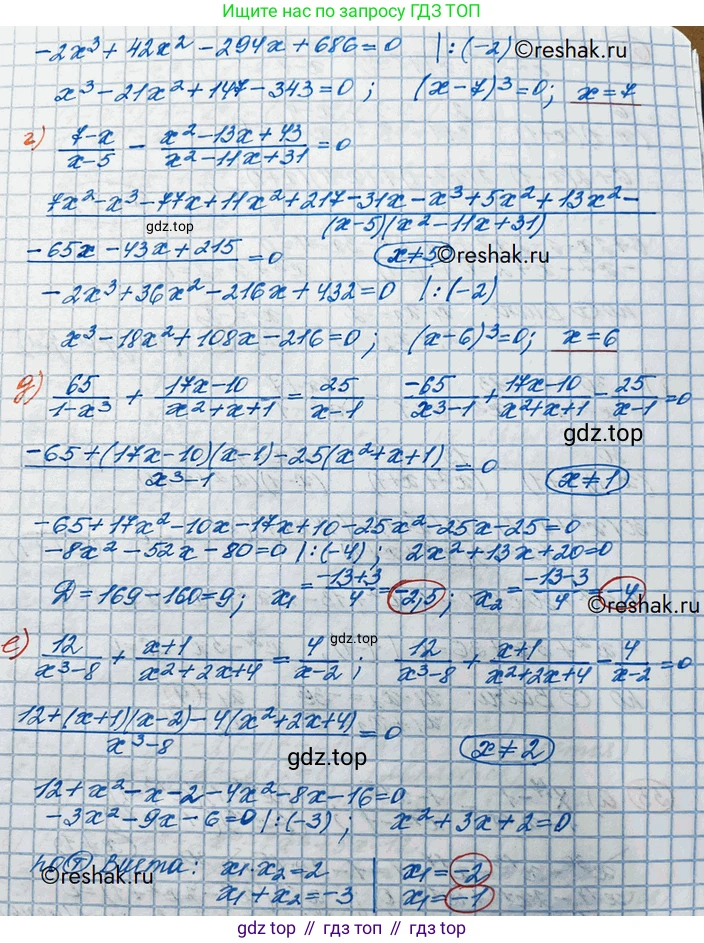 Ищите нас по запросу ГДЗ ТОП
-2x³ + 42x² - 294x + 686 = 0 |:(-2) ©reshak.ru
x³ - 21x² + 147 - 343 = 0 ; (x-7)³ = 0; x = 7
г) (7-x)/(x-5) - (x²-13x+43)/(x²-11x+31) = 0
(7x² - x³ - 77x + 11x² + 217 - 31x - x³ + 5x² + 13x² -
gdz.top
(x-5)(x²-11x+31)
-65x - 43x + 215)/ = 0 x≠5 ©reshak.ru
-2x³ + 36x² - 216x + 432 = 0 |:(-2)
x³ - 18x² + 108x - 216 = 0 ; (x-6)³ = 0; x = 6
д) 65/(1-x³) + (17x-10)/(x²+x+1) = 25/(x-1) -65/(x³-1) + (17x-10)/(x²+x+1) - 25/(x-1) = 0
gdz.top
(-65+(17x-10)(x-1)-25(x²+x+1))/(x³-1) = 0 x≠1
-65+17x²-10x-17x+10-25x²-25x-25=0
-8x²-52x-80=0 |:(-4) ; 2x²+13x+20=0
D=169-160=9; x₁=(-13+3)/4=-2,5; x₂=(-13-3)/4=-4
©reshak.ru
е) 12/(x³-8) + (x+1)/(x²+2x+4) = 4/(x-2) ; 12/(x³-8) + (x+1)/(x²+2x+4) - 4/(x-2) = 0
gdz.top
(12+(x+1)(x-2)-4(x²+2x+4))/(x³-8) = 0 x≠2
gdz.top
12+x²-x-2-4x²-8x-16=0
-3x²-9x-6=0 |:(-3) ; x²+3x+2=0
по Т Виета: x₁·x₂=2 | x₁=-2
©reshak.ru x₁+x₂=-3 | x₁=-1
gdz.top // гдз.топ // gdz.top // гдз.топ // gdz.top